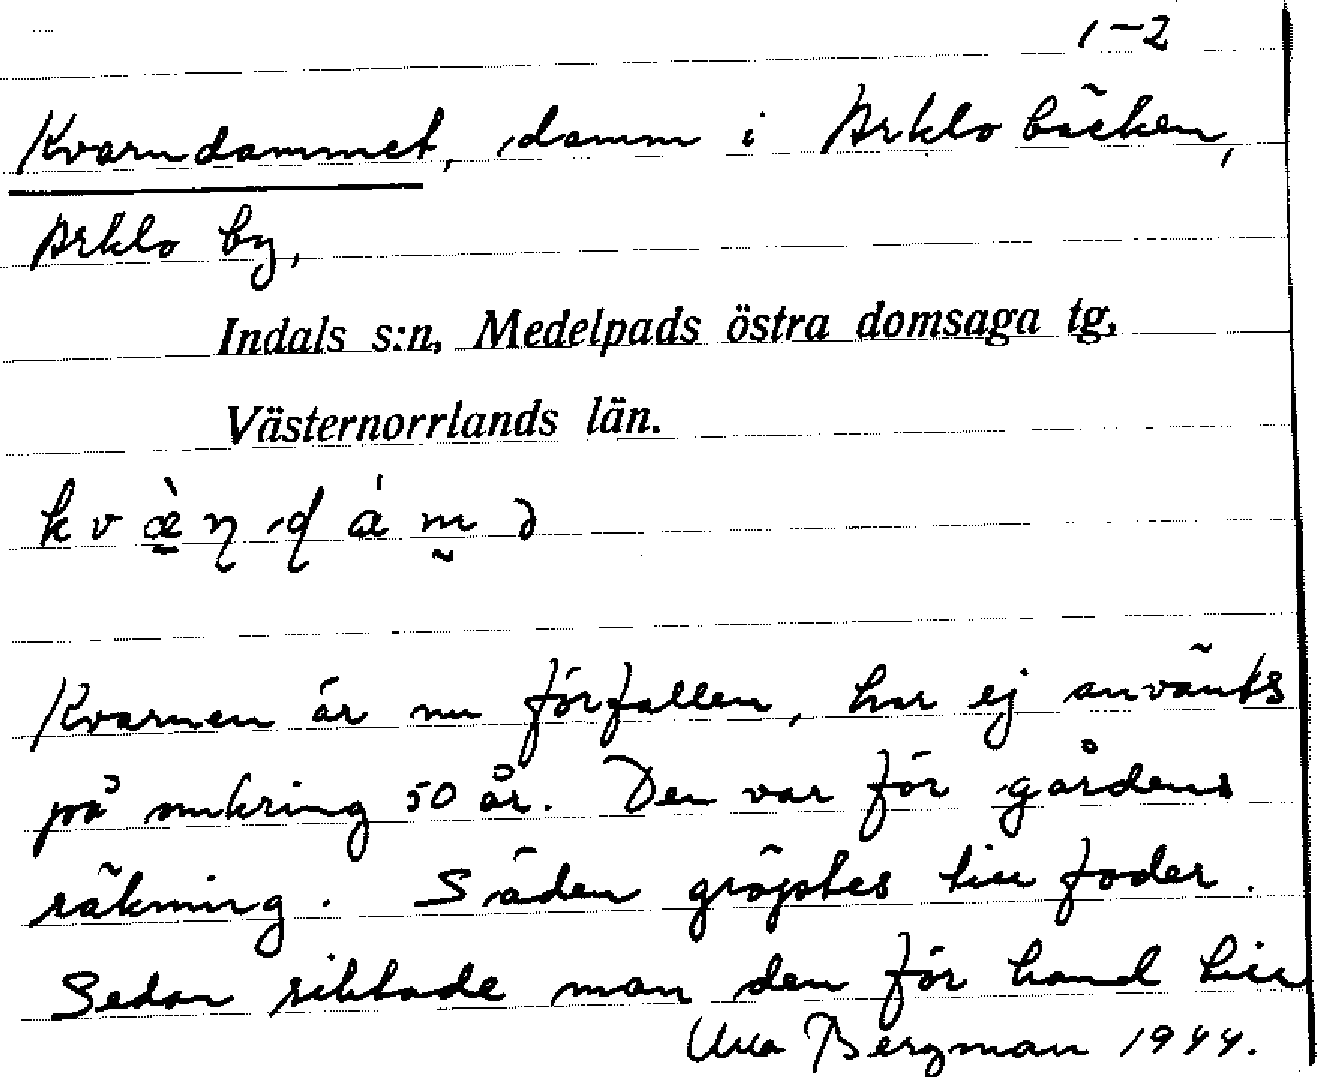 1-2
Kvarndammet, damm i Arklo bäcken,
Arklo by,
Indals s:n, Medelpads östra domsaga tg,
Västernorrlands län.
Kvarnen är nu förfallen, har ej använts
på omkring 50 år. Den var för gårdens
räkning. Säden gröptes till foder.
Sedan siktade man den för hand till
Ulla Bergman 1944.